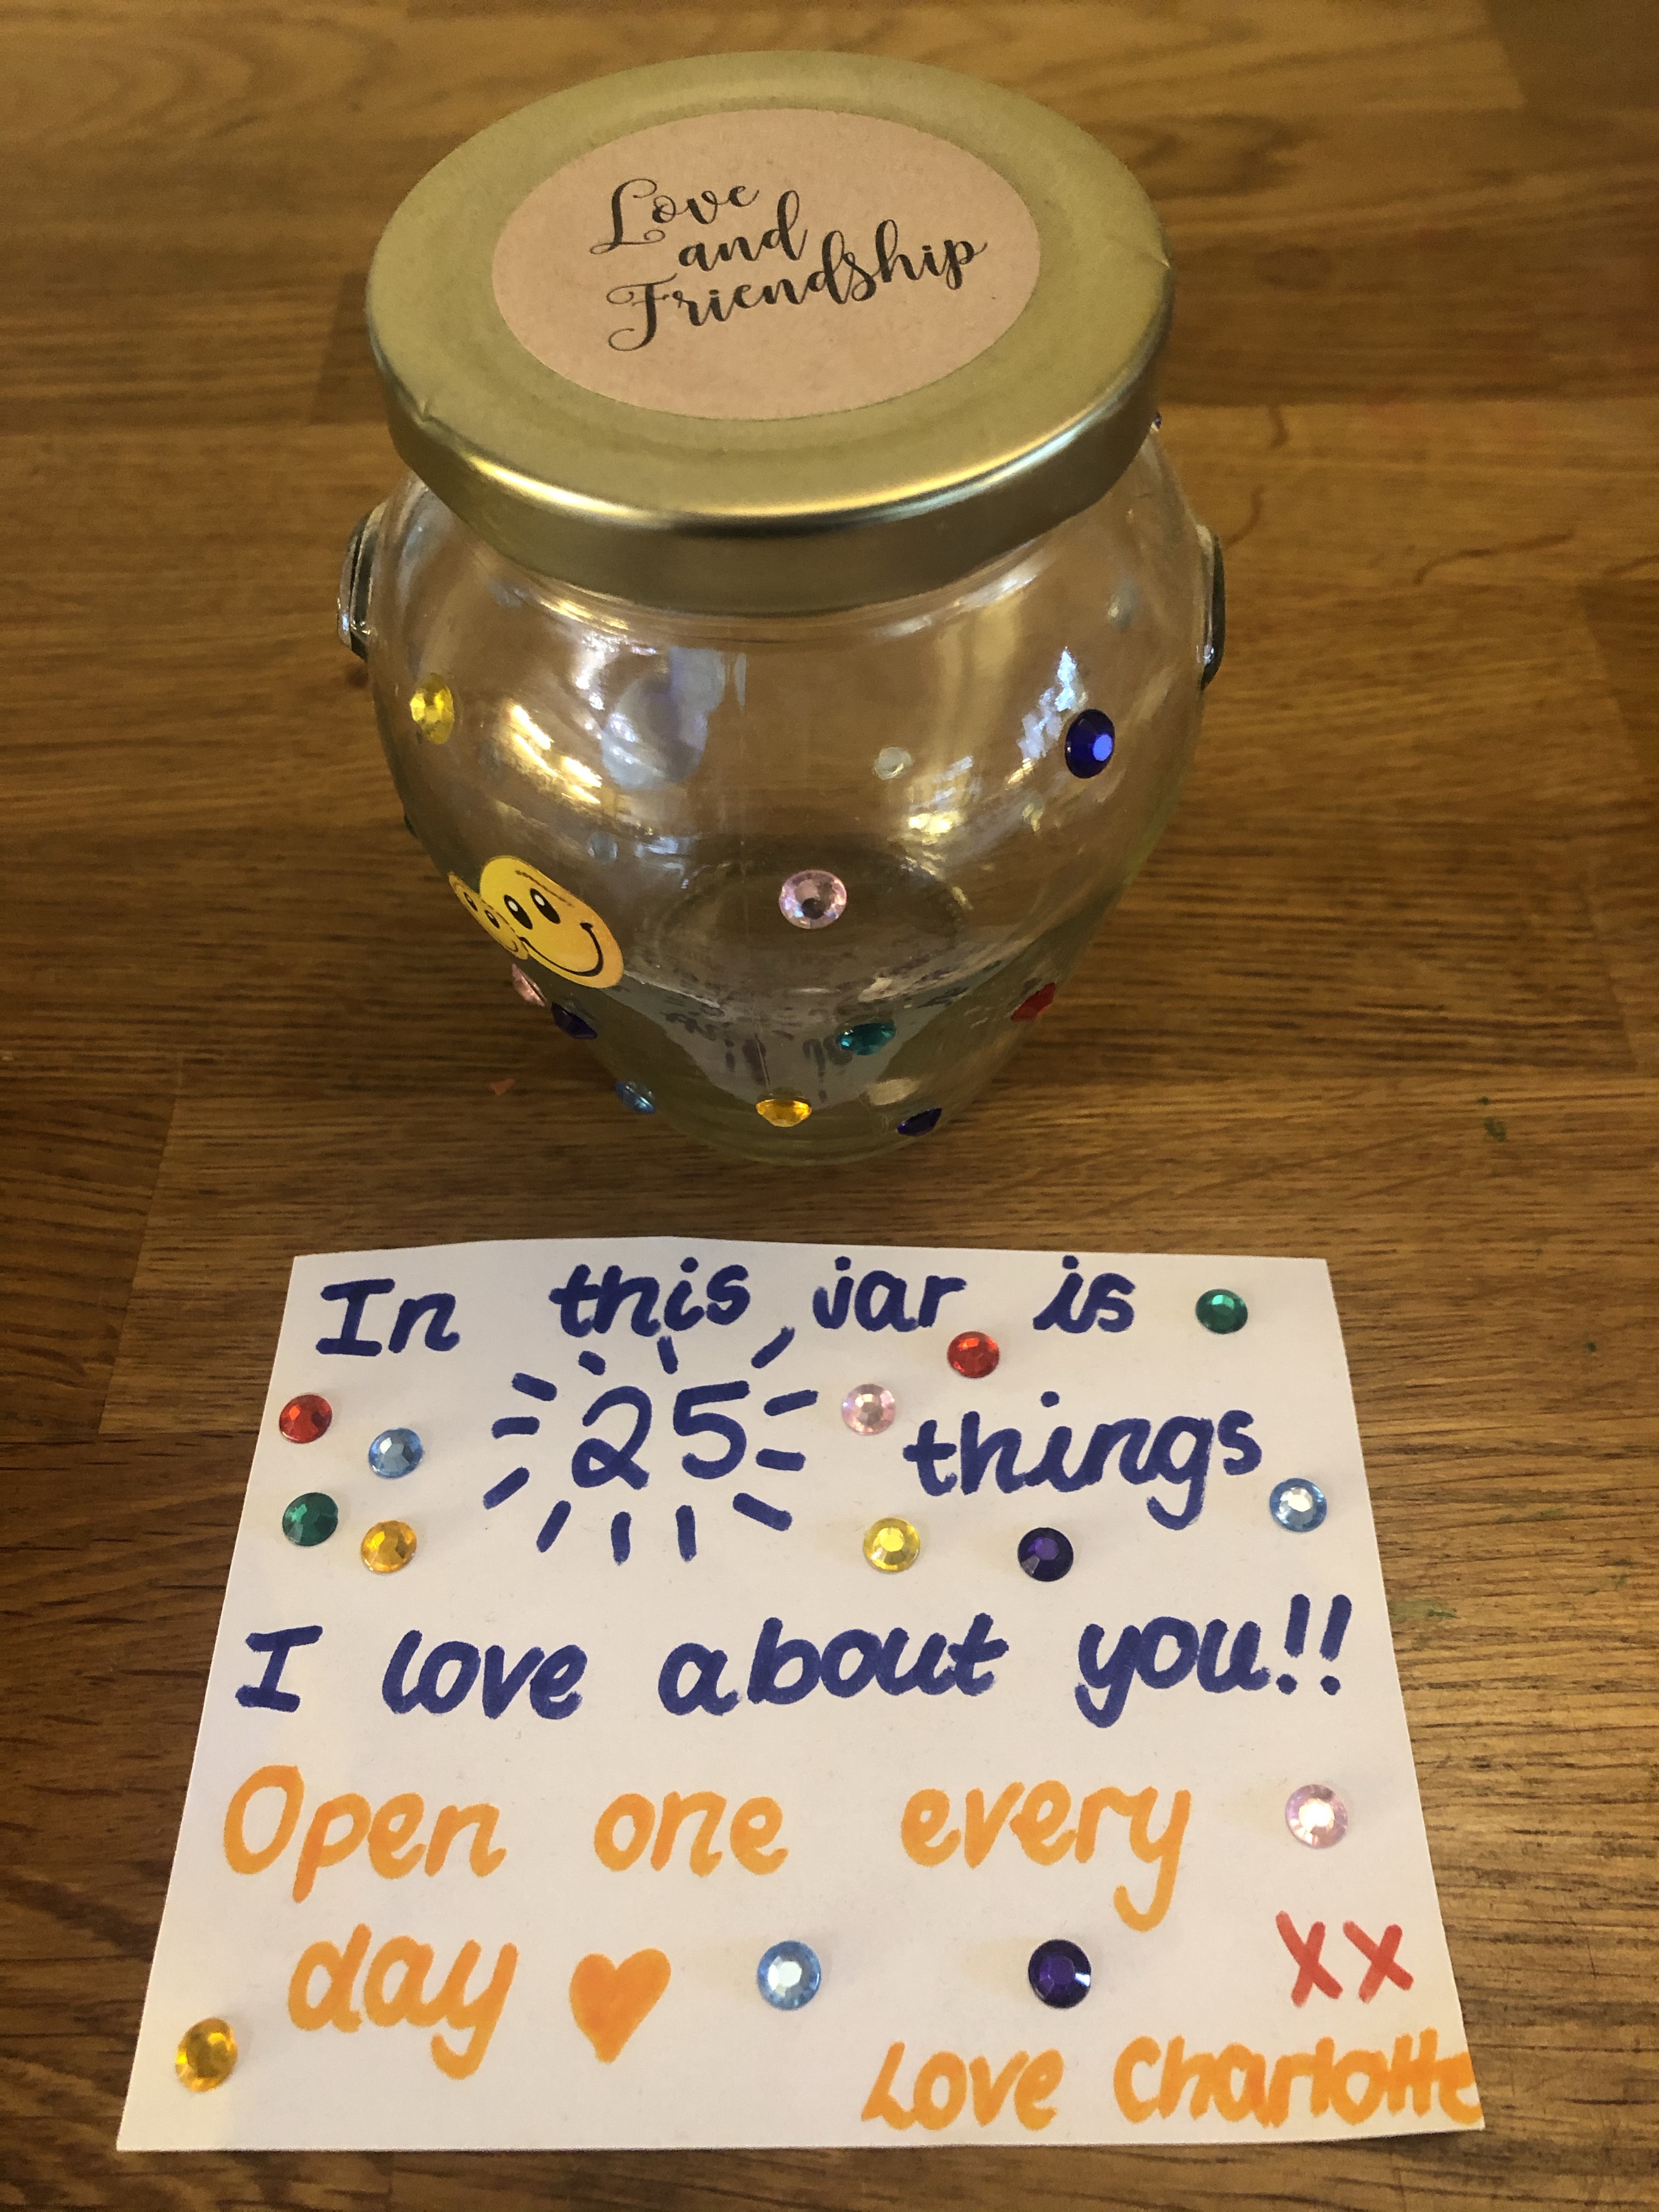 Love
and
Friendship
In this jar is
25 things
I love about you!!
Open one every
day
xx
Love Charlotte